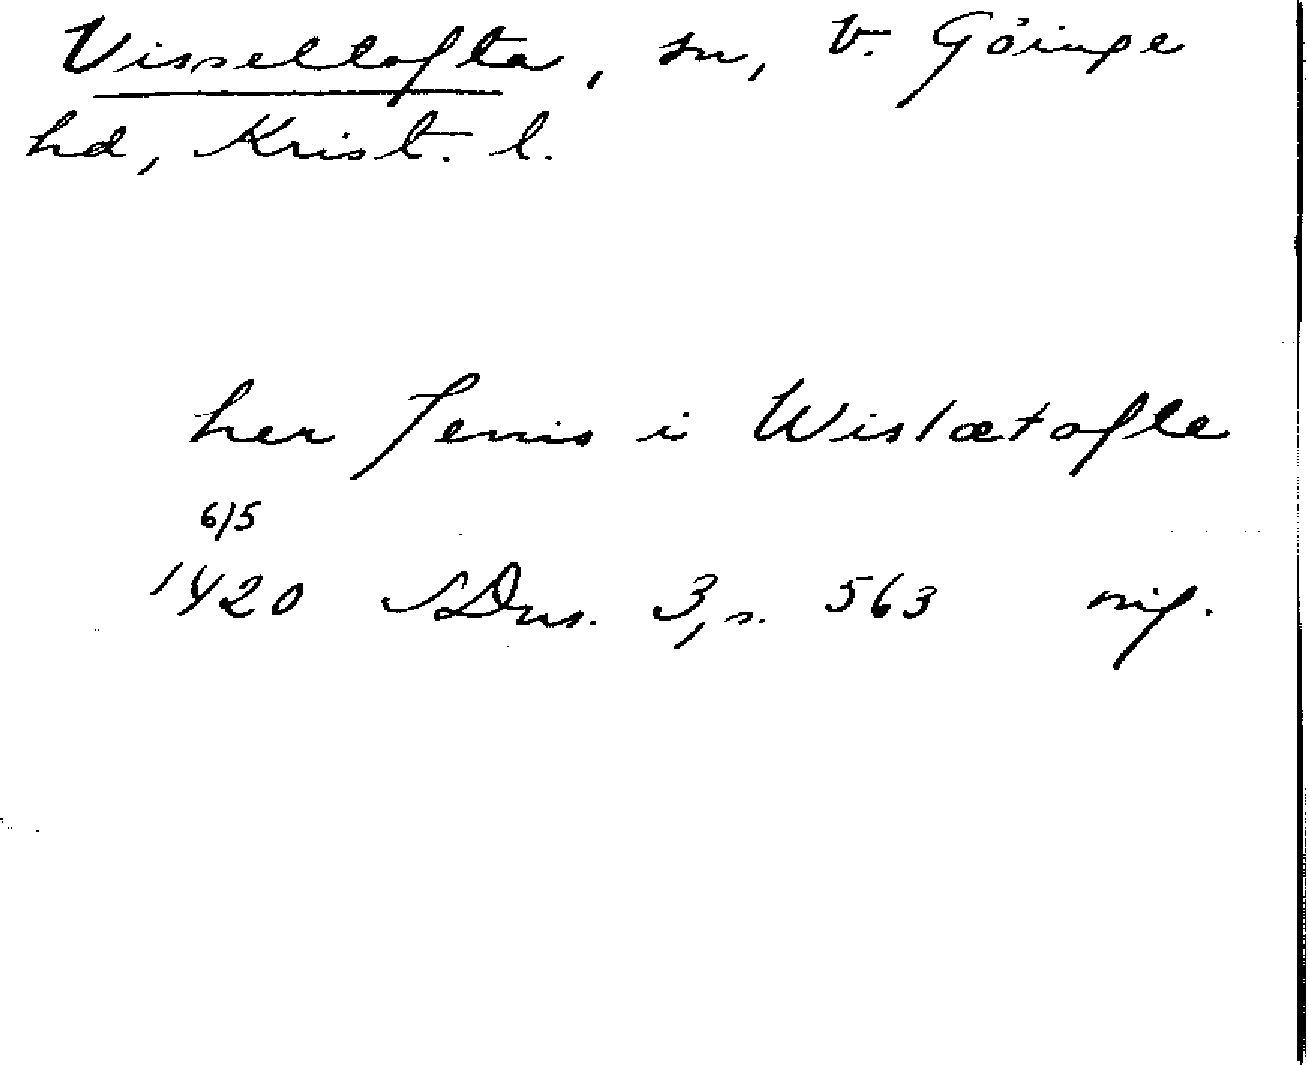 Visseltofta, sn, V. Göinge
hd, Krist. l.
her Jenis i Wislætofte
6/5
1420 SDns. 3, s. 563 orig.